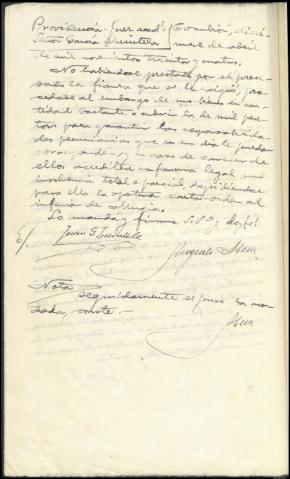 Providencia Juez acctal
Señor García Quintela
Corcubión, dieci
nueve de abril
de mil novecientos treinta y cuatro.
No habiéndose prestado por el proce-
sado la fianza que se le exigió, pro-
cédase al embargo de sus bienes en can-
tidad bastante a cubrir la de mil pese-
tas para garantir las responsabilida
des pecuniarias que en su día le puedan
corresponder, y en caso de carecer de
ellos acredítese en forma legal su
insolvencia total o parcial, expidiéndose
para ello la oportuna carta-orden al
inferior de
Lo manda y firma S.Sª, doy fé.
E/.
Juan G. Quintela
Nota
Seguidamente se puso la acor-
dada, conste.-